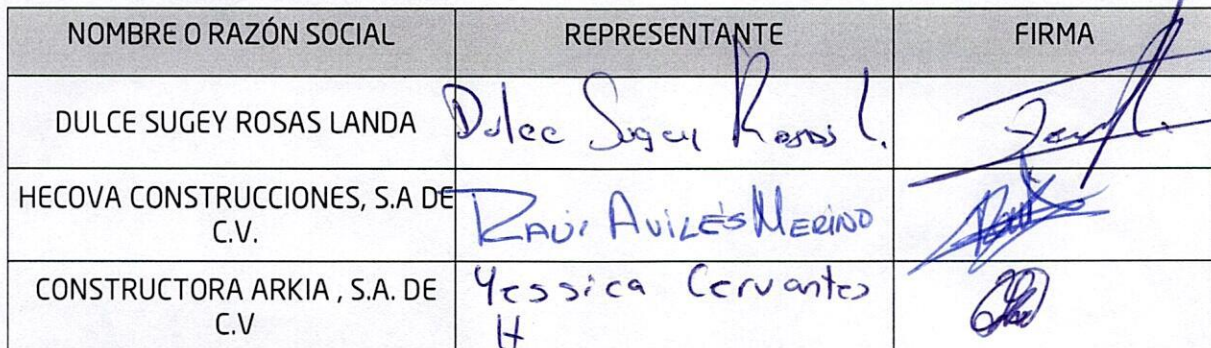 NOMBRE O RAZÓN SOCIAL REPRESENTANTE FIRMA
DULCE SUGEY ROSAS LANDA Dulce Sugey Rosas L.
HECOVA CONSTRUCCIONES, S.A DE
C.V. RAÚL AVILÉS MERINO
CONSTRUCTORA ARKIA , S.A. DE
C.V Yessica Cervantes
H